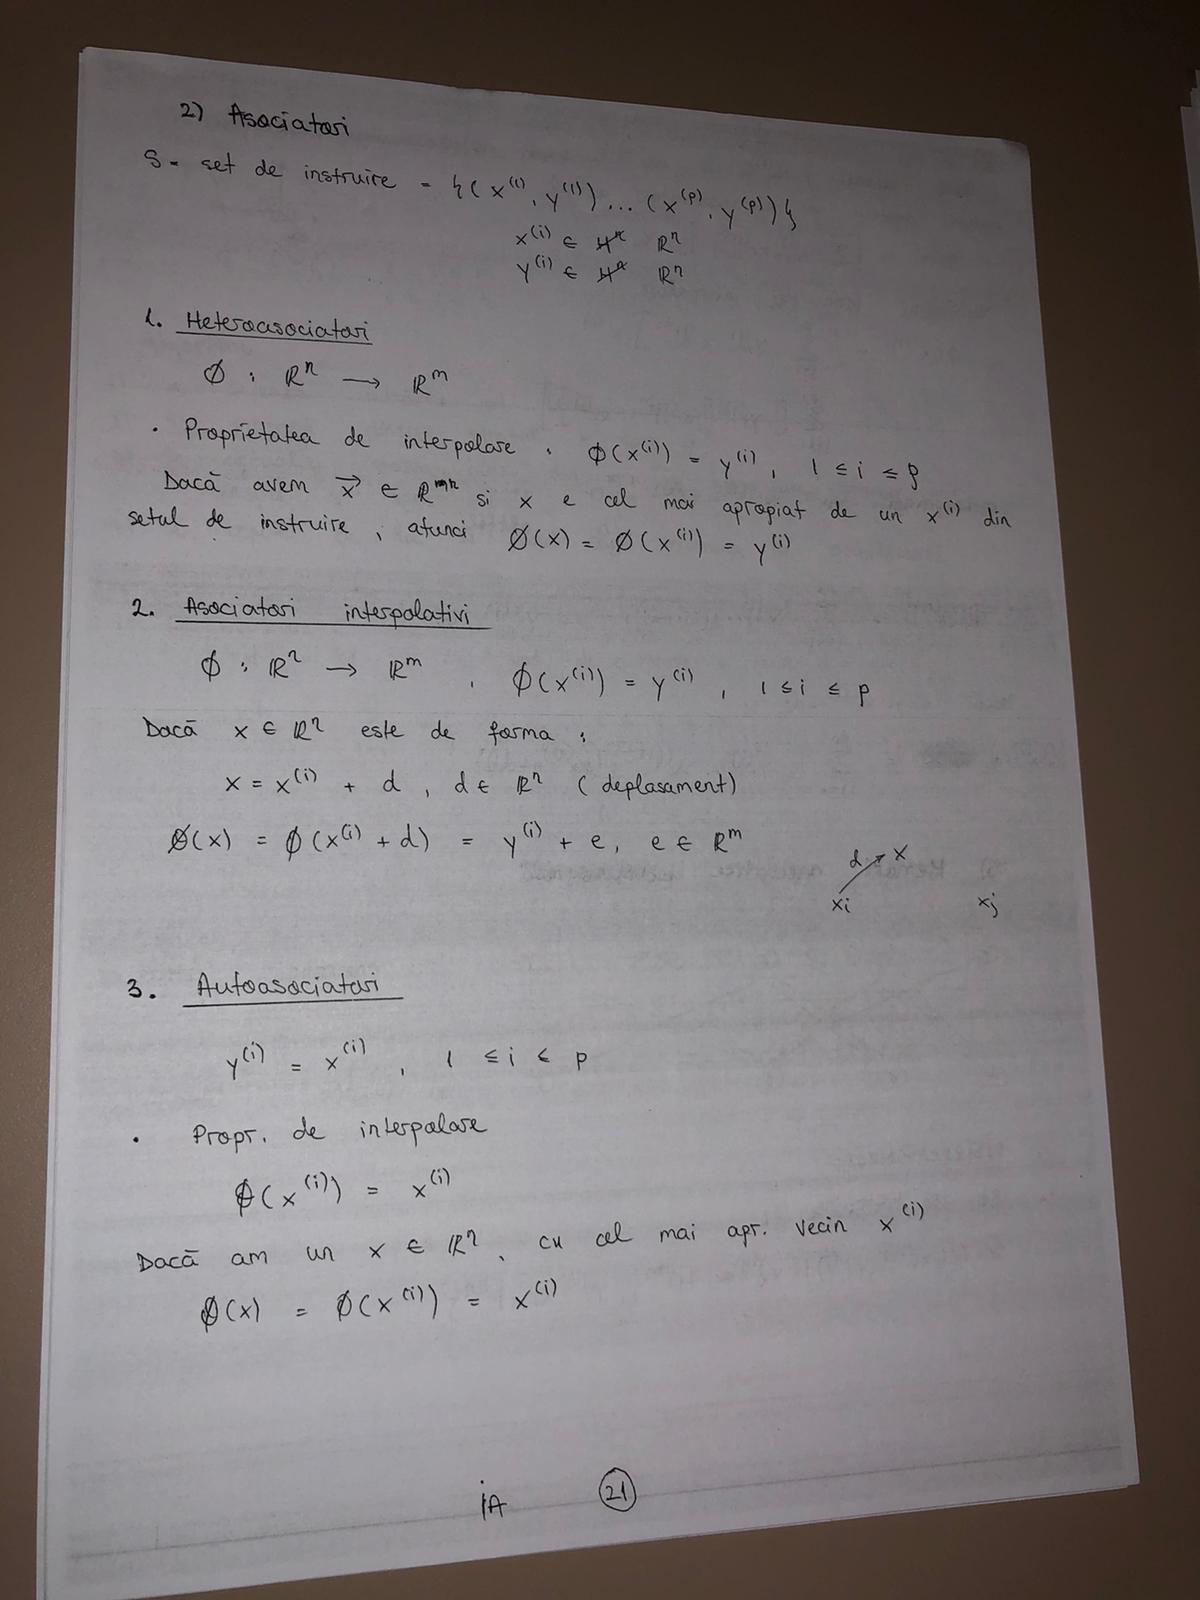 2) Asociatori
S = set de instruire = {(x⁽¹⁾, y⁽¹⁾) ... (x⁽ᵖ⁾, y⁽ᵖ⁾)}
x⁽ⁱ⁾ ∈ ℝⁿ
y⁽ⁱ⁾ ∈ ℝⁿ
1. Heteroasociatori
Ø : ℝⁿ → ℝᵐ
· Proprietatea de interpolare . Ø(x⁽ⁱ⁾) = y⁽ⁱ⁾, 1 ≤ i ≤ p
Dacă avem x⃗ ∈ ℝⁿ si x e cel mai apropiat de un x⁽ⁱ⁾ din
setul de instruire , atunci Ø(x) = Ø(x⁽ⁱ⁾) = y⁽ⁱ⁾
2. Asociatori interpolativi
Ø : ℝⁿ → ℝᵐ , Ø(x⁽ⁱ⁾) = y⁽ⁱ⁾ , 1 ≤ i ≤ p
Dacă x ∈ ℝⁿ este de forma :
x = x⁽ⁱ⁾ + d , d ∈ ℝⁿ (deplasament)
Ø(x) = Ø(x⁽ⁱ⁾ + d) = y⁽ⁱ⁾ + e, e ∈ ℝᵐ
d x
xi xj
3. Autoasociatori
y⁽ⁱ⁾ = x⁽ⁱ⁾ , 1 ≤ i ≤ p
· Propr. de interpolare
Ø(x⁽ⁱ⁾) = x⁽ⁱ⁾
Dacă am un x ∈ ℝⁿ, cu cel mai apr. vecin x⁽ⁱ⁾
Ø(x) = Ø(x⁽ⁱ⁾) = x⁽ⁱ⁾
iA 21